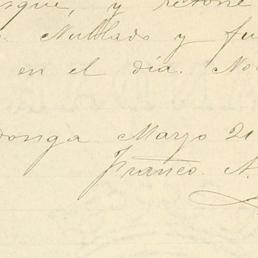 sque, y retoñe
Nublado y fu
en el día. No
onga Marzo 21
Franco. A.